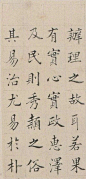 辦理之故耳若果
有實心實政惠澤
及民則秀頑之俗
其易治尤易於朴